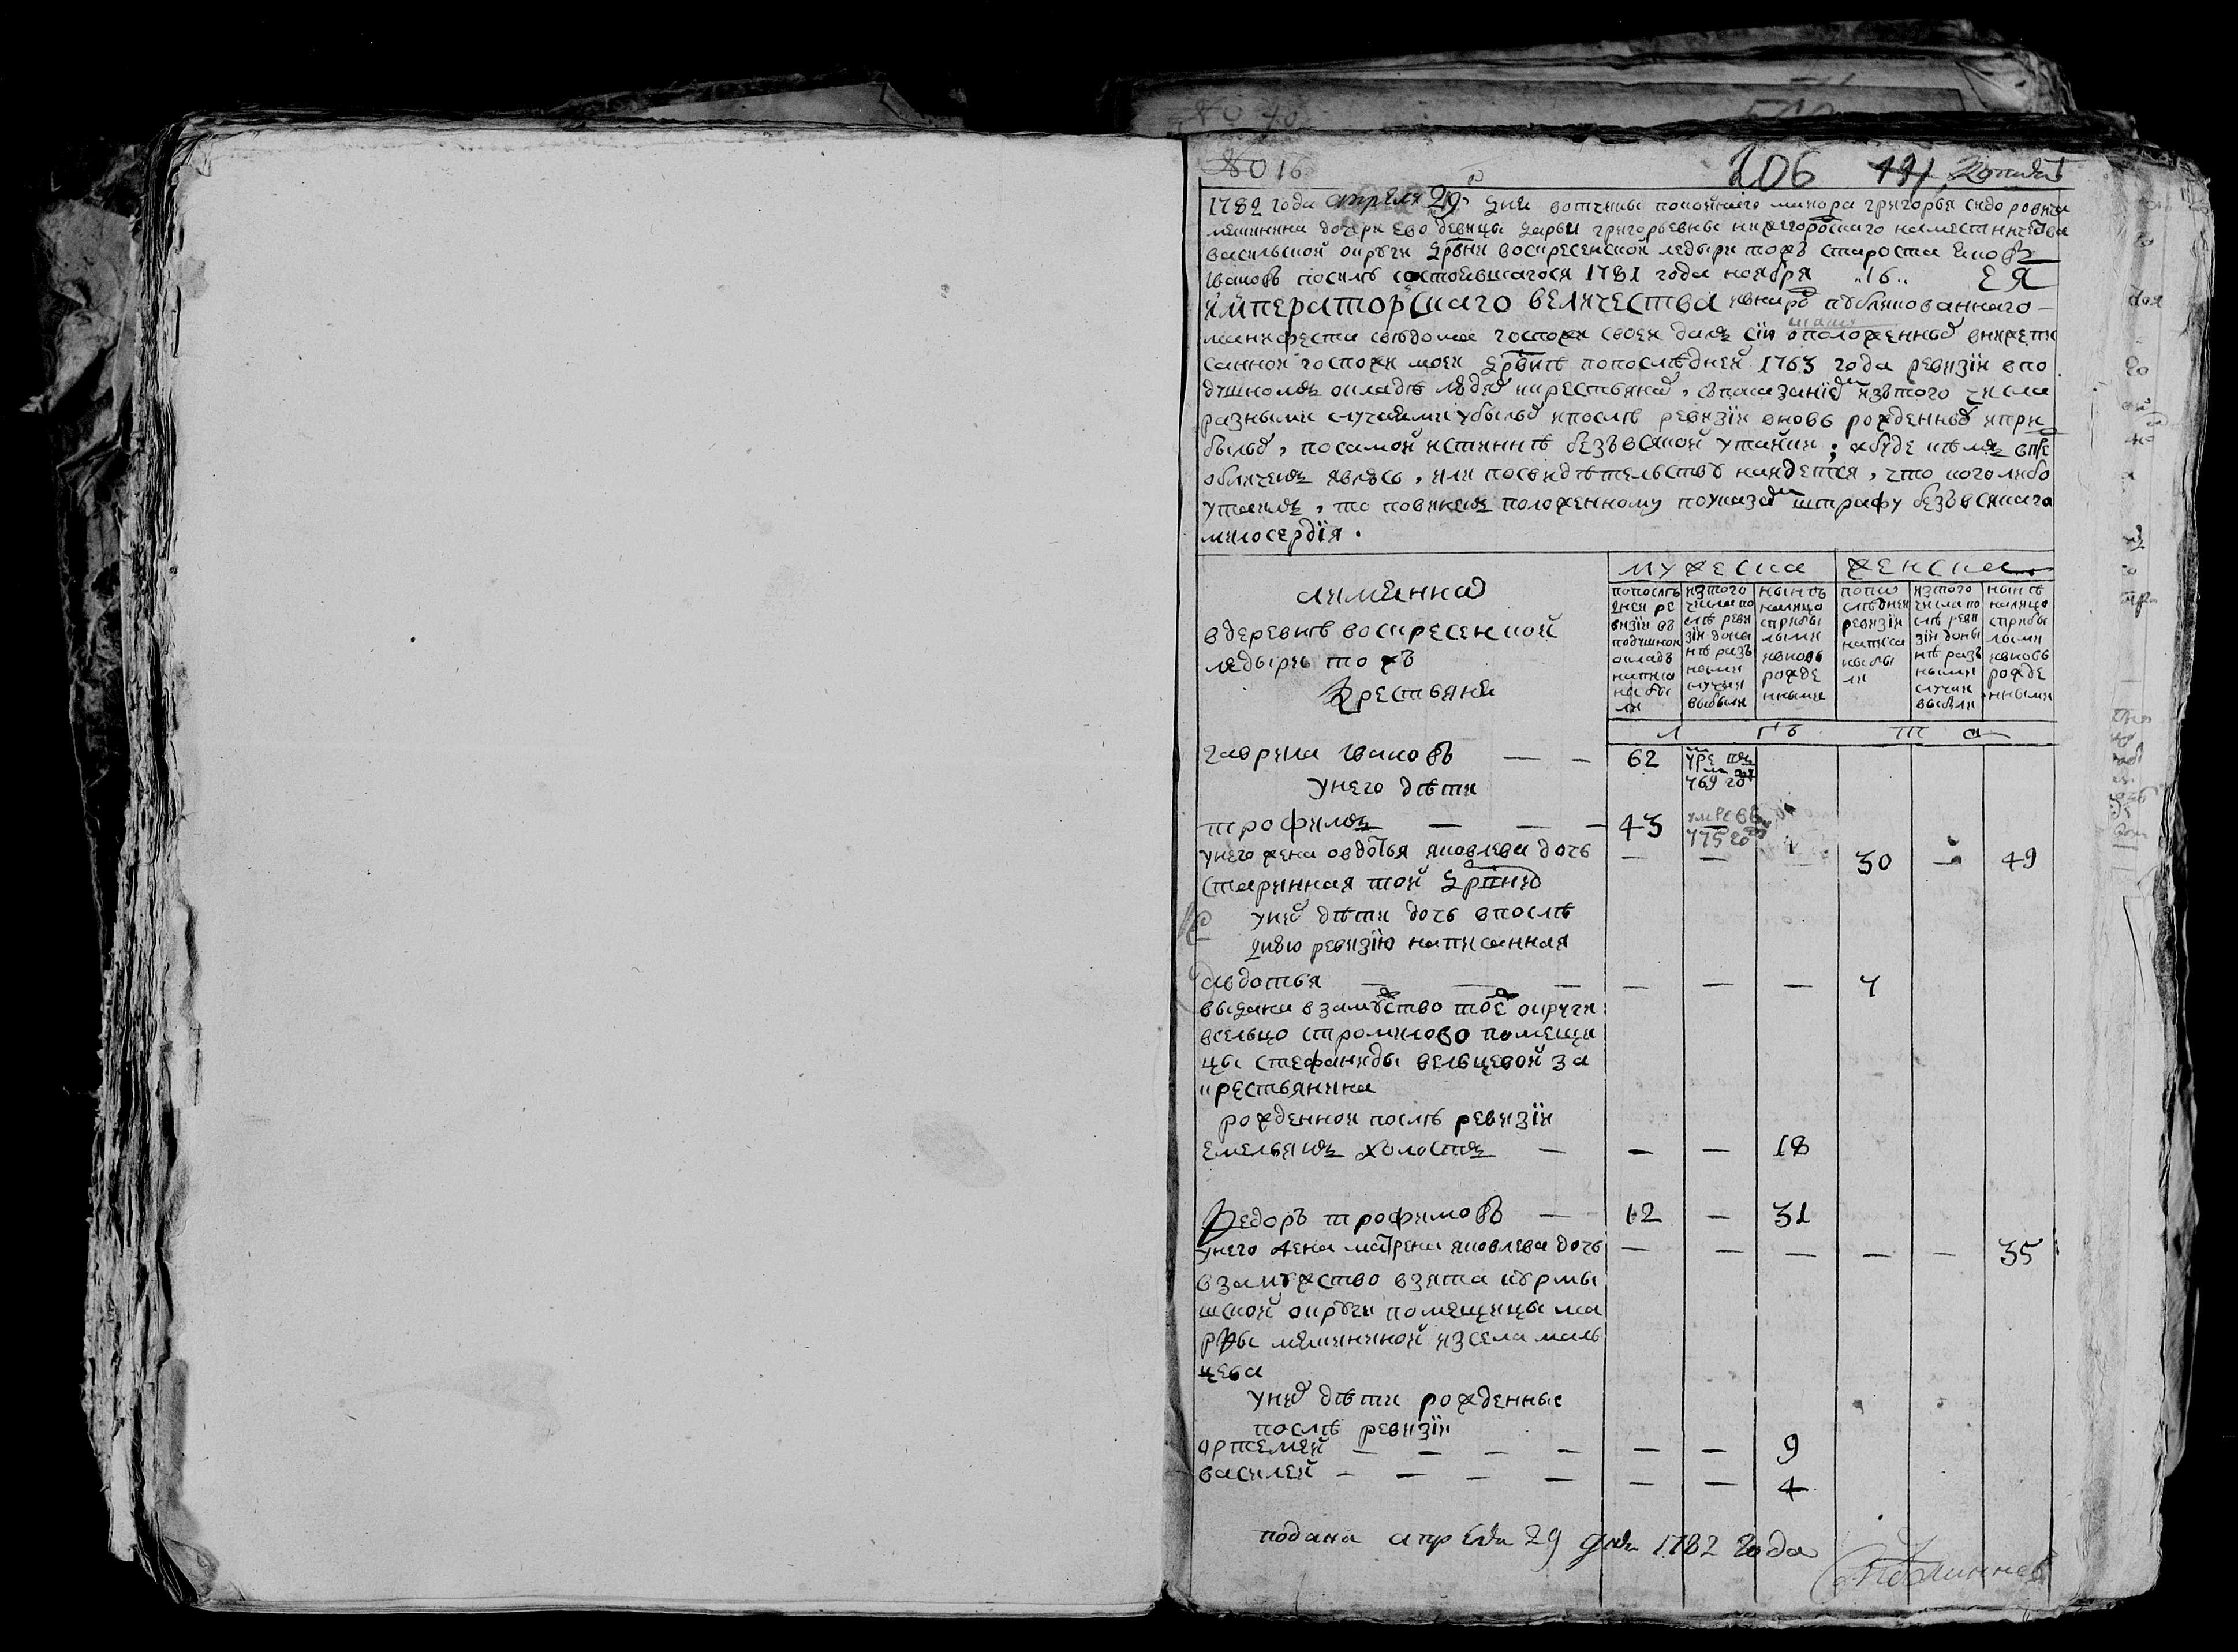 № 16
206 191
1782 года апреля 29 дня вотчины покойнаго маиора григорья сидоровича
дочери ево девицы дарьи григорьевны нижегороского наместничества
васильской округи дрвни воскресенской тожъ староста
ивановъ посилѣ состоявшагося 1781 года ноября 16 ЕЯ
императорскаго величества публикованнаго
манифеста сведома госпожи своей далъ сiю о положенных
госпожи моей дрвнѣ попослѣдней 1763 года ревизiи впо
душномъ окладѣ людях икрестьянах, спаказанiем изътого числа
разными случаями убылых ипослѣ ревизiи вновь рожденных ипри
былых, посамой истиннѣ безъвсякой утайки; абуде кѣмъ
обличенъ явлюсь, или посвидѣтельству найдется, что коголибо
утаилъ, то повиненъ положенному поуказам штрафу безъвсякаго
милосердiя.
мужеска женска
вдеревнѣ воскресенской
тожъ
крестьяне
попослѣдней ревизiи въ подушном окладѣ написаны были
изтого числа послѣ ревизiи доныне разъными случаи выбыли
нынѣ налицо сприбылыми ивновь рожденными
попослѣдней ревизiи написаны были
изтого числа послѣ ревизiи доныне разъными случаи выбыли
нынѣ налицо сприбылыми ивновь рожденными
лѣта
гаврила ивановъ — — 62 умре въ 769 год
унего дѣти
трофимъ — — — 43 умре въ 775 год
унего жена овдотья яковлева дочь — — — 30 — 49
старинная той дрвни
уних дѣти дочь впослѣ
днюю ревизiю написанная
авдотья — — — — — — 4
выдана взамуство тое округи
всельцо стромилово помещи
цы стефаниды вельцевой за
крестьянина
рожденной послѣ ревизiи
емельянъ холостъ — — — 18
Федоръ трофимовъ — 12 — 31
унего жена матрена яковлева дочь — — — — — 35
взамужство взята курмы
шской округи помещицы ма
рфы изсела маль
цева
уних дѣти рожденные
послѣ ревизiи
артемей — — — — — — 9
василей — — — — — — 4
подана апреля 29 дня 1782 года